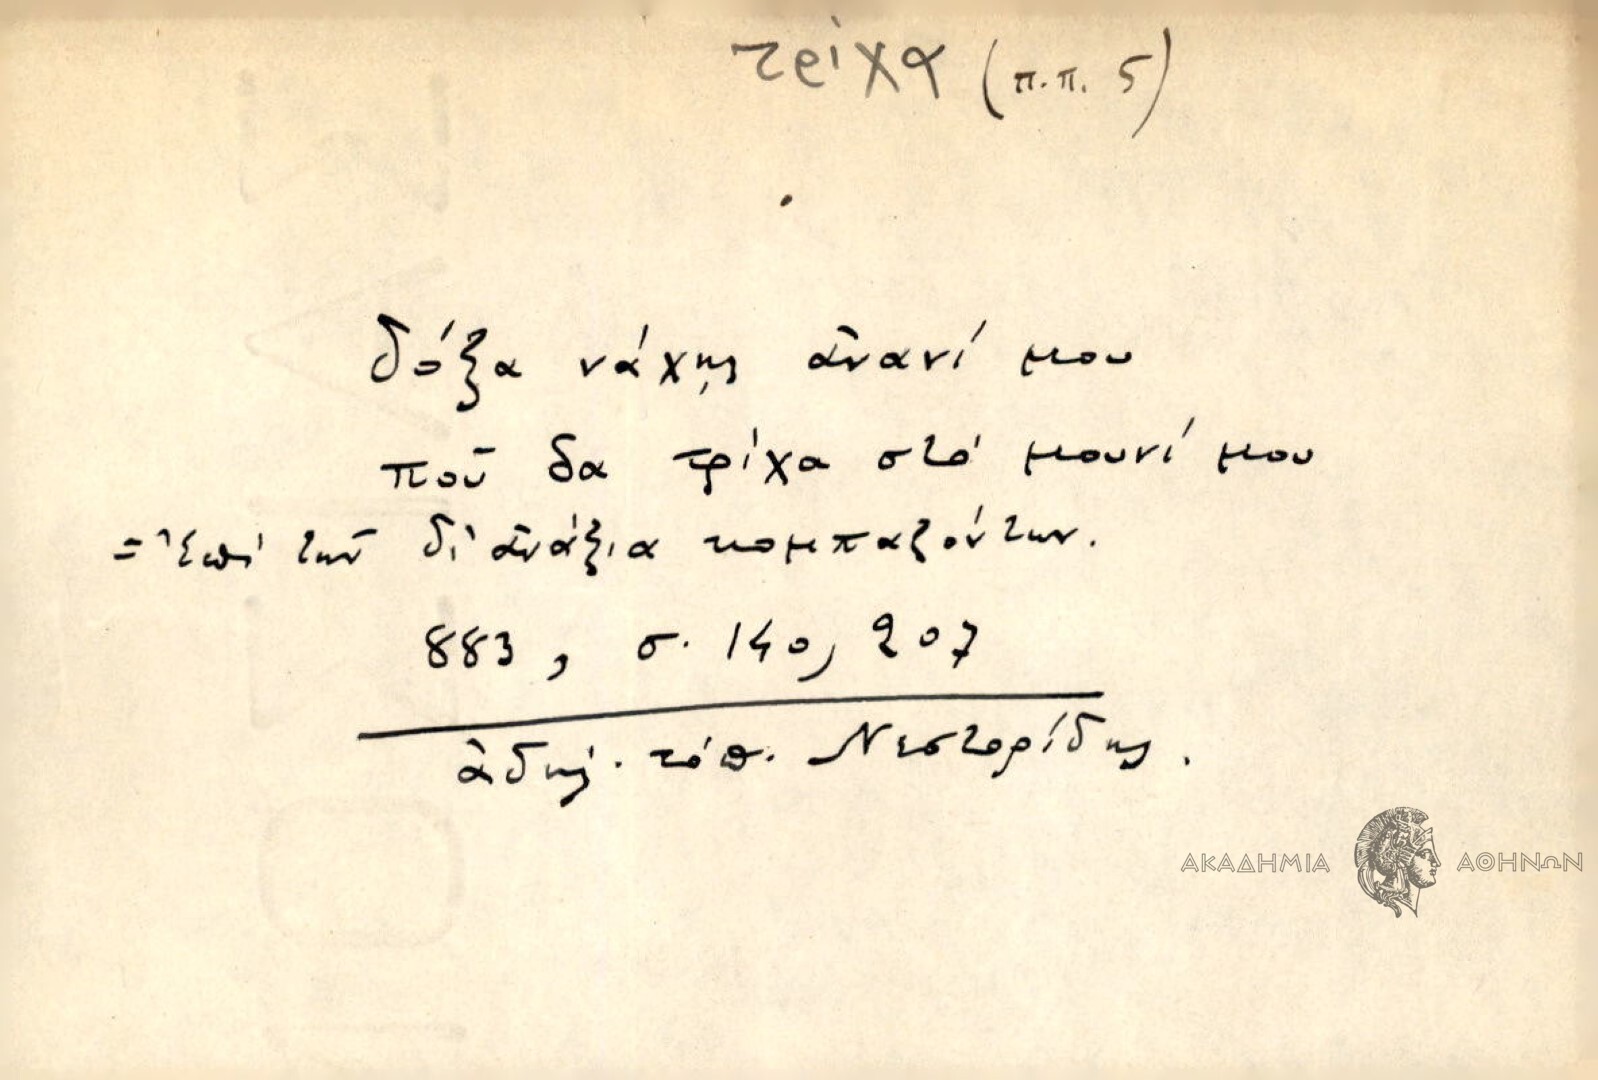 τρίχα (π.π. 5)
δόξα νάχῃς ἀνανί μου
ποῦ δα τρίχα στὸ μουνί μου
= Ἐπὶ τῶν δι' ἀνάξια κομπαζόντων.
883, σ. 140, 207
ἀδήλ. τόπ. Νεστορίδης.
ΑΚΑΔΗΜΙΑ ΑΘΗΝΩΝ